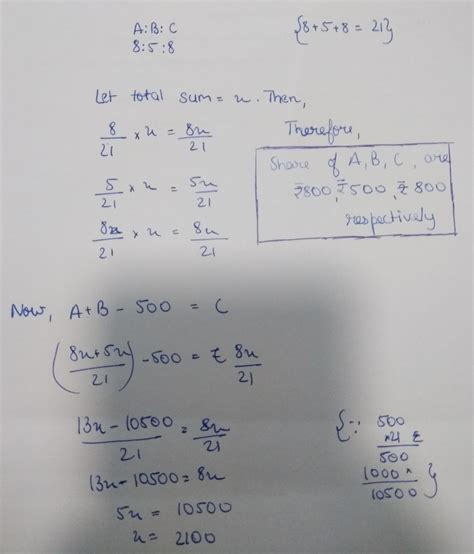 A:B:C {8+5+8 = 21}
8:5:8
Let total sum = x. Then,
8/21 × x = 8x/21
5/21 × x = 5x/21
8x/21 × x = 8x/21
Therefore,
Share of A, B, C, are
₹800, ₹500, ₹800
respectively
Now, A+B - 500 = C
(8x+5x/21) - 500 = 8x/21
13x - 10500/21 = 8x/21
13x - 10500 = 8x
5x = 10500
x = 2100
{∵ 500
×21
500
1000×
10500}